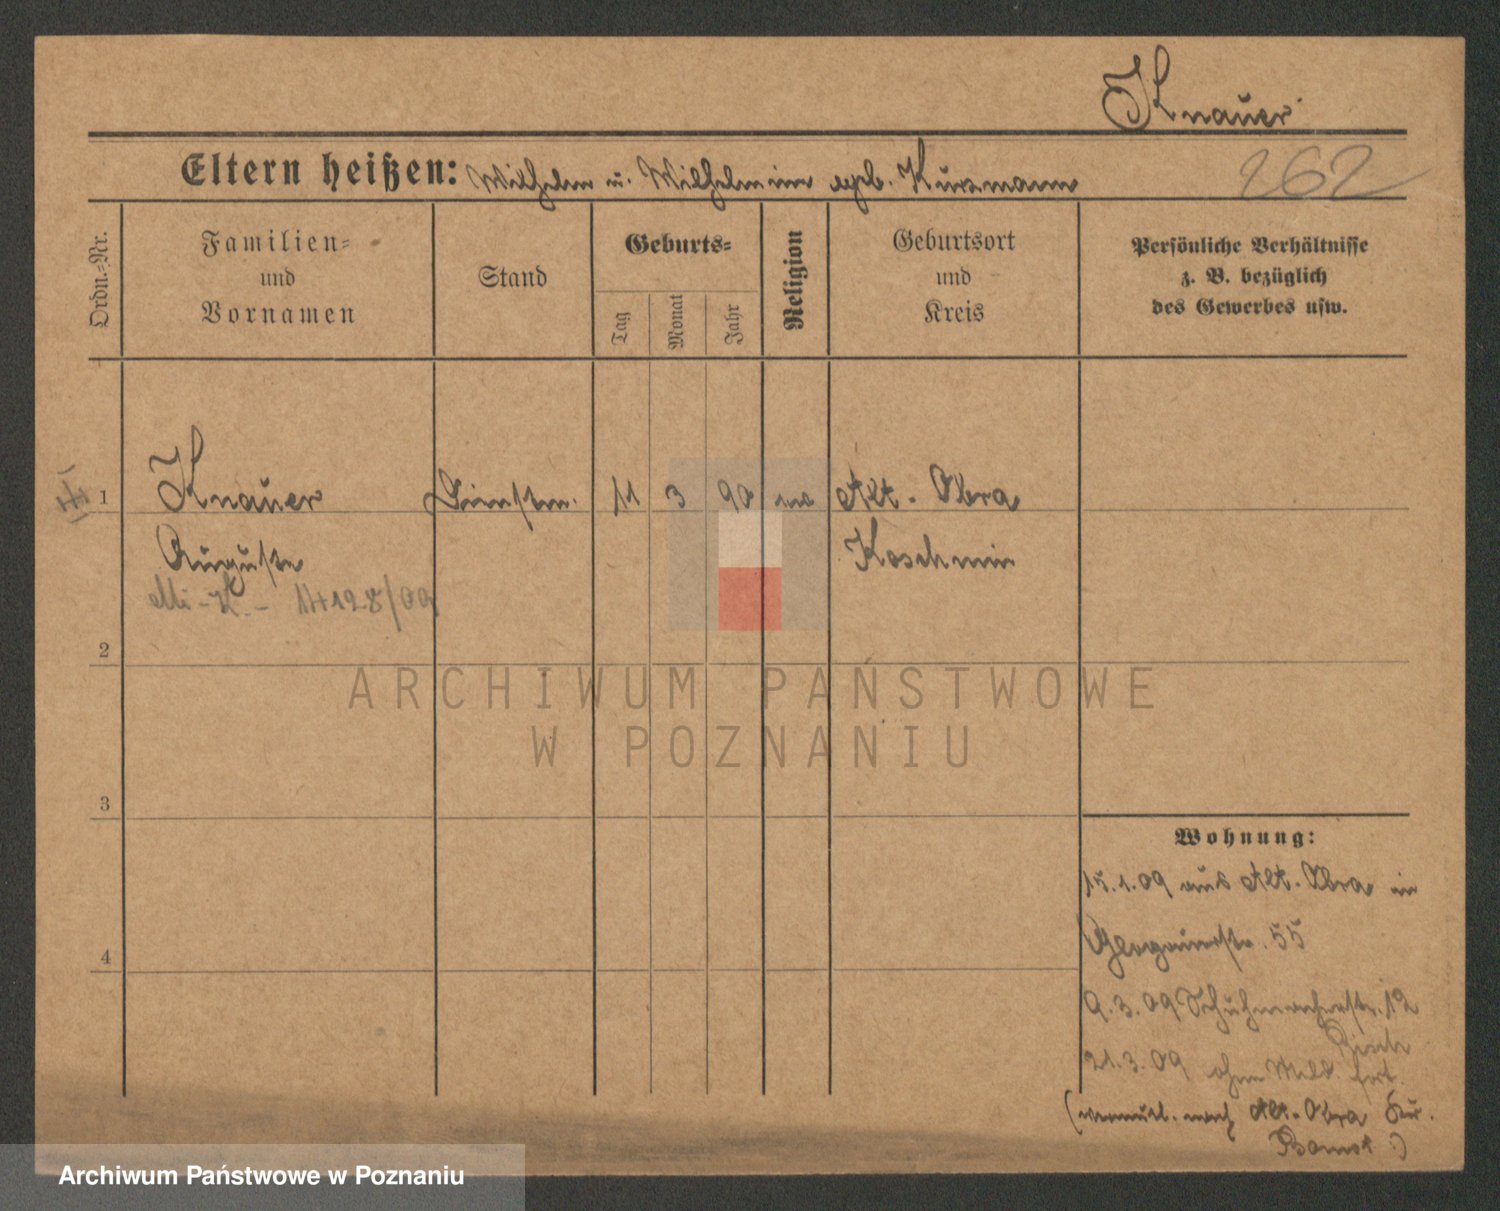 Knauer
Eltern heißen: Wilhelm u. Wilhelmine geb. Kursmann
262
Ordn.-Nr.
Familien-
und
Vornamen
Stand
Geburts-
Tag
Monat
Jahr
Religion
Geburtsort
und
Kreis
Persönliche Verhältnisse
z. B. bezüglich
des Gewerbes usw.
1
Knauer
Dienstm.
11
3
90
Alt-Obra
Auguste
Koschmin
2
ARCHIWUM PAŃSTWOWE
W POZNANIU
3
Wohnung:
15.1.09 aus Alt-Obra in
Glogauerstr. 55
4
9.3.09 Schuhmacherstr. 12
21.3.09 ohne Meld. fort.
(vermutl. nach Alt-Obra Kr.
Bomst)
Archiwum Państwowe w Poznaniu